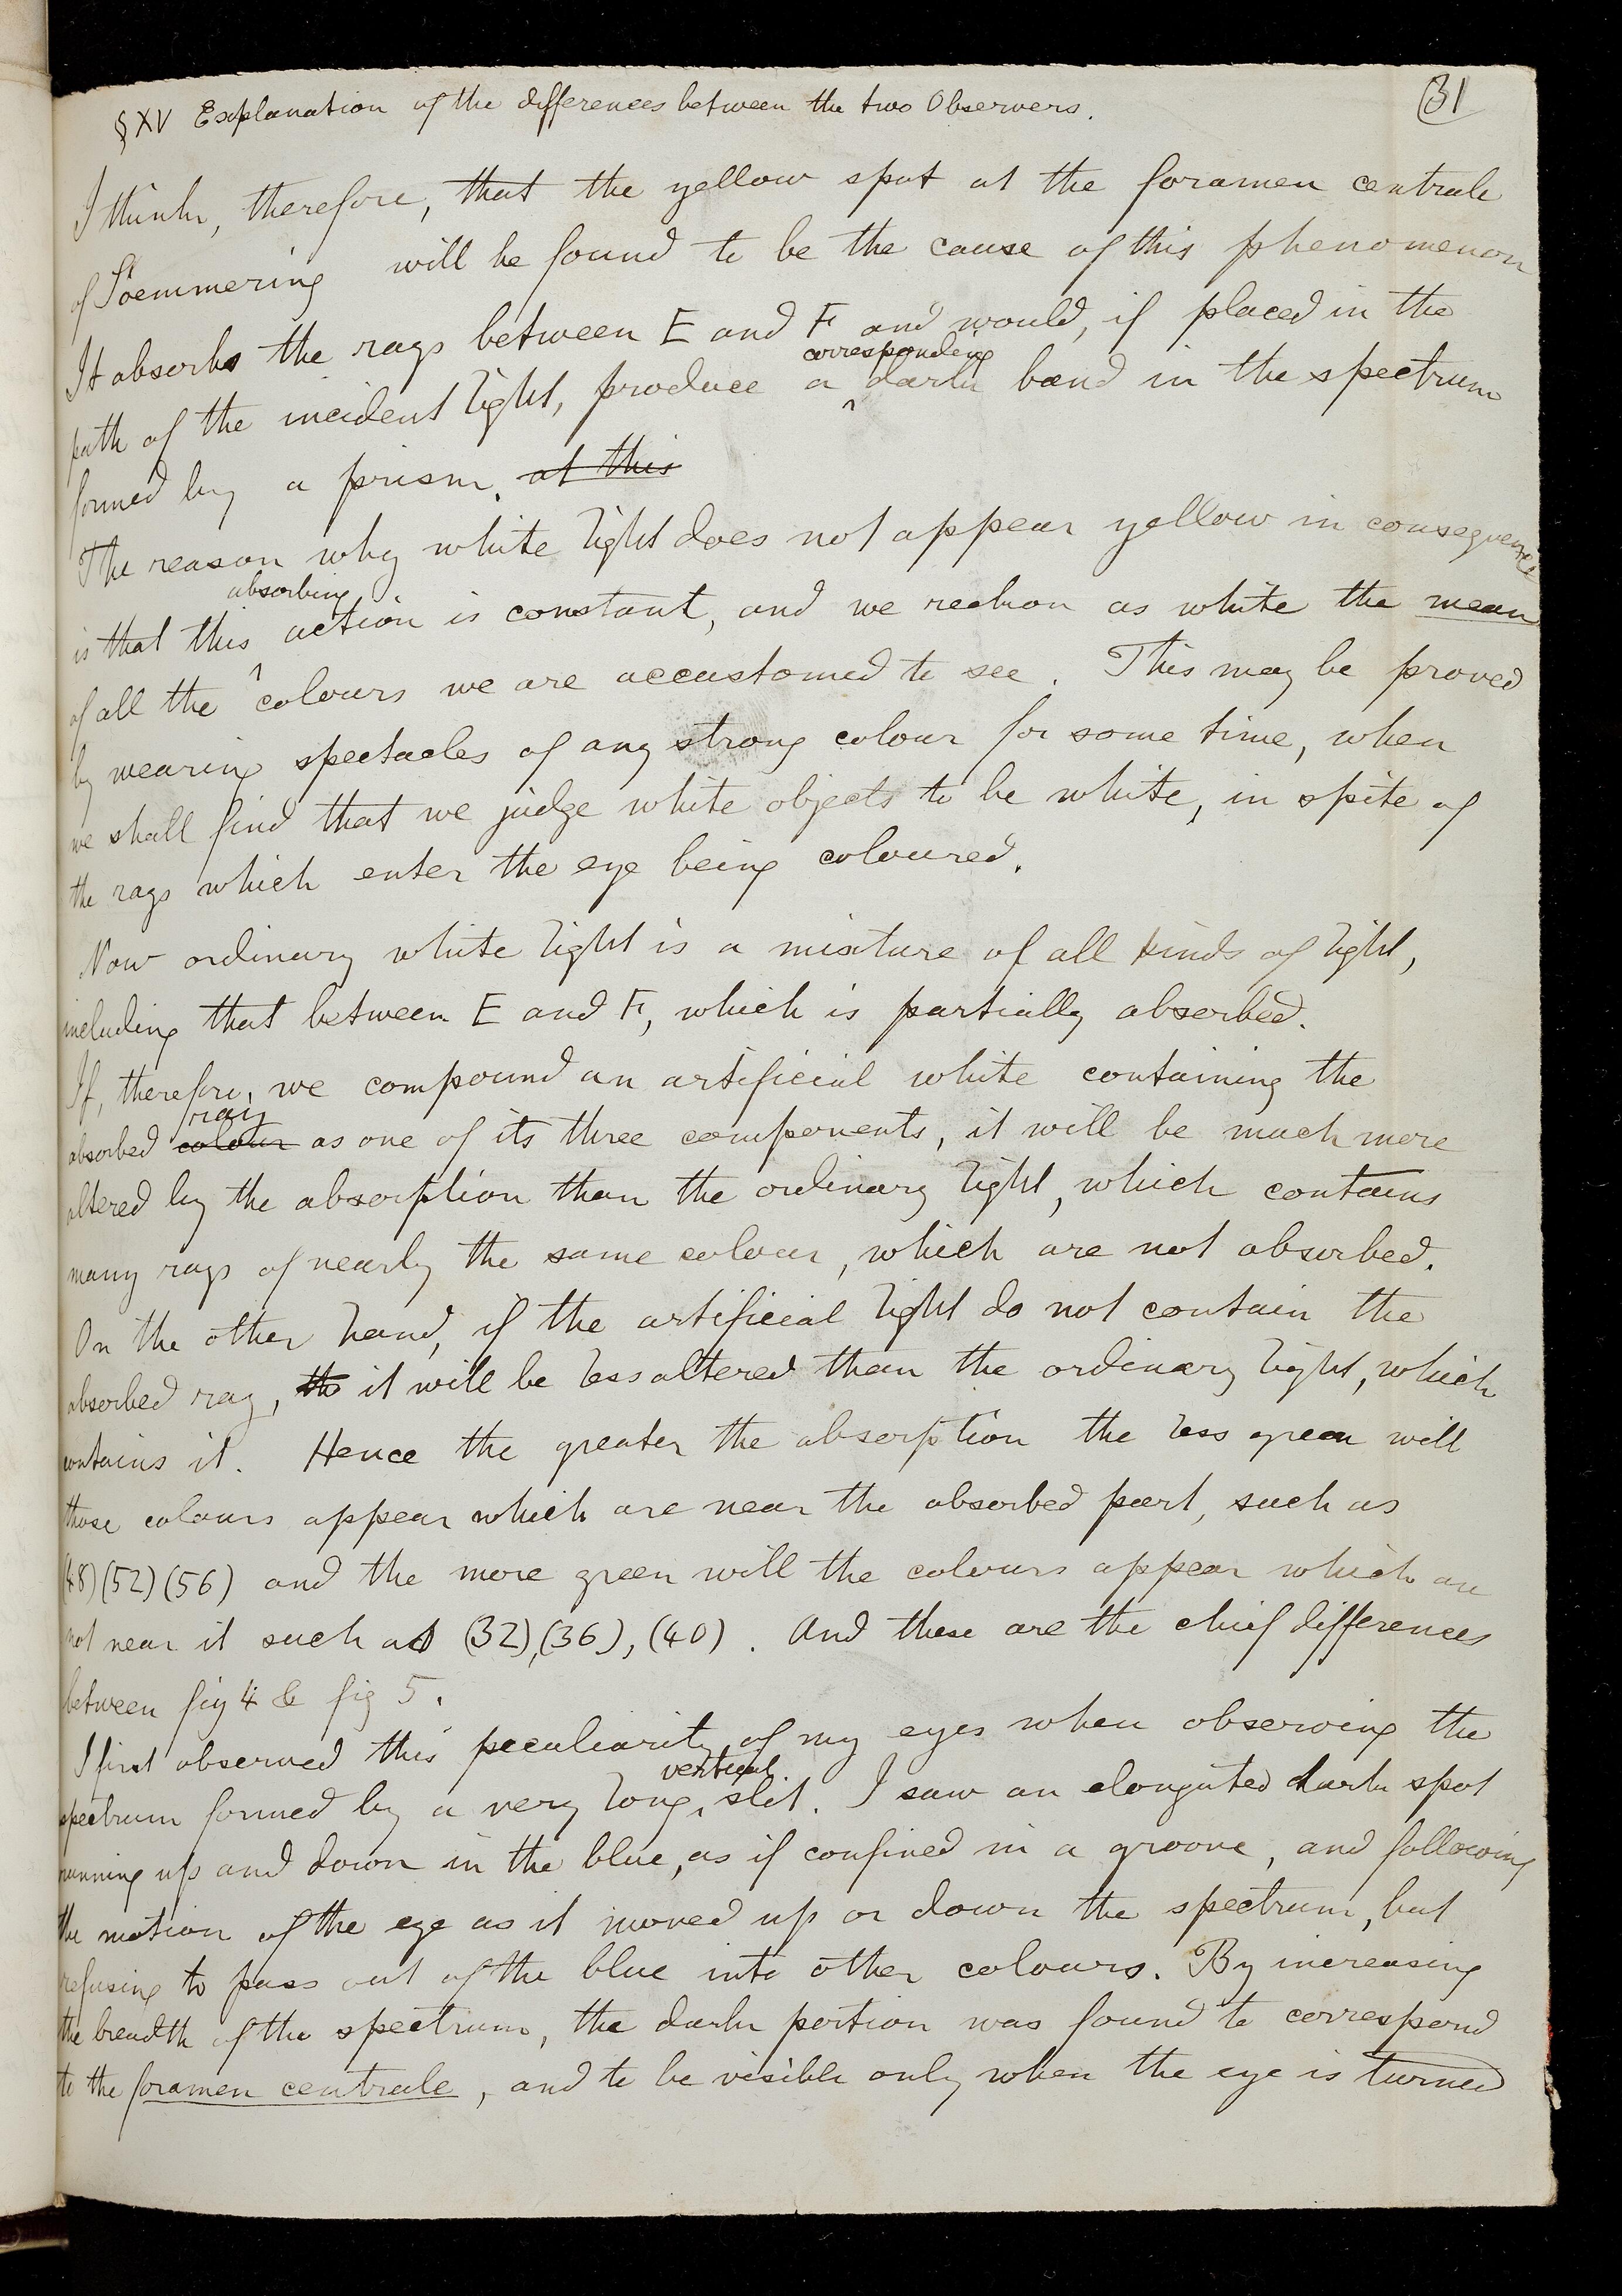 31
§XV Explanation of the differences between the two Observers.
I think, therefore, that the yellow spot at the foramen centrale
of Soemmering will be found to be the cause of this phenomenon
It absorbs the rays between E and F and would, if placed in the
corresponding
path of the incident light, produce a dark band in the spectrum
formed by a prism. at this
The reason why white light does not appear yellow in consequence
absorbing
is that this action is constant, and we reckon as white the mean
of all the colours we are accustomed to see. This may be proved
by wearing spectacles of any strong colour for some time, when
we shall find that we judge white objects to be white, in spite of
the rays which enter the eye being coloured.
Now ordinary white light is a mixture of all kinds of light,
including that between E and F, which is partially absorbed.
If, therefore, we compound an artificial white containing the
ray
absorbed colour as one of its three components, it will be much more
altered by the absorption than the ordinary light, which contains
many rays of nearly the same colour, which are not absorbed.
On the other hand, if the artificial light do not contain the
absorbed ray, th it will be less altered than the ordinary light, which
contains it. Hence the greater the absorption the less green will
those colours appear which are near the absorbed part, such as
(48) (52) (56) and the more green will the colours appear which are
not near it such as (32), (36), (40). And these are the chief differences
between fig 4 & fig 5.
I first observed this peculiarity of my eyes when observing the
vertical
spectrum formed by a very long, slit. I saw an elongated dark spot
running up and down in the blue, as if confined in a groove, and following
the motion of the eye as it moved up or down the spectrum, but
refusing to pass out of the blue into other colours. By increasing
the breadth of the spectrum, the dark portion was found to correspond
to the foramen centrale, and to be visible only when the eye is turned